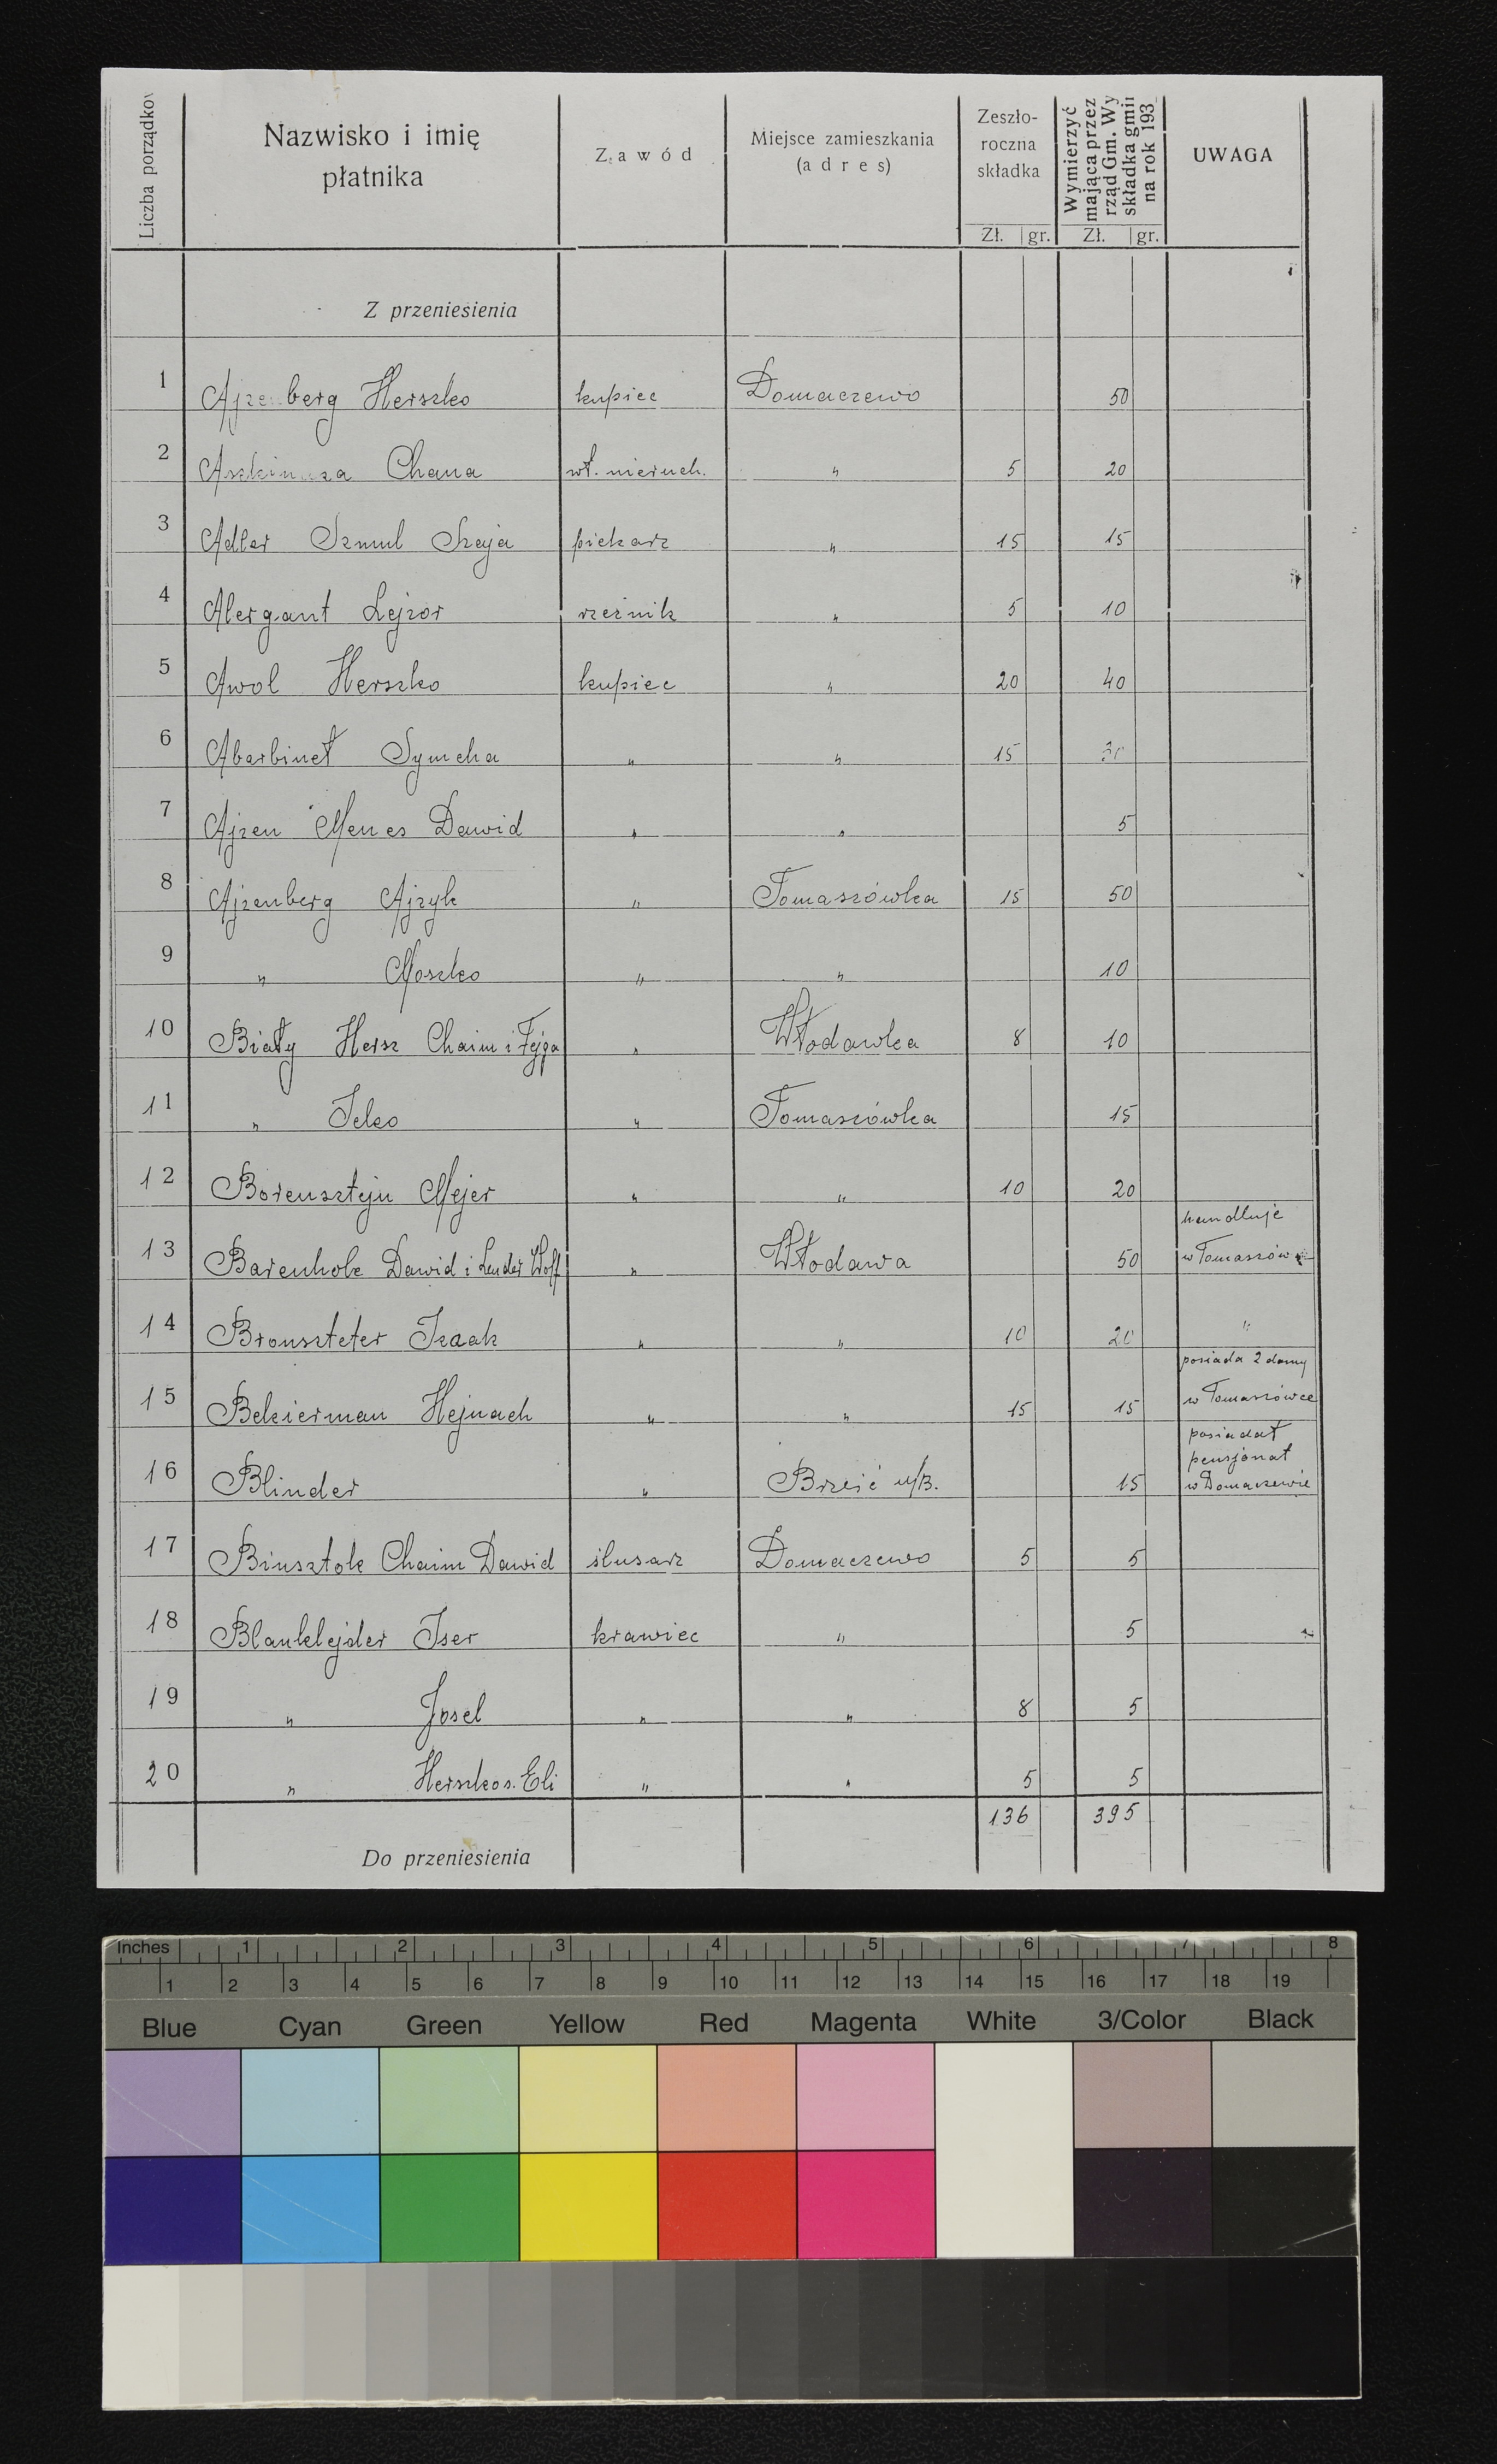 Liczba porządkow
Nazwisko i imię
płatnika
Zawód
Miejsce zamieszkania
(adres)
Zeszło-
roczna
składka
Zł. gr.
Wymierzyć
mająca przez
rząd Gm. Wy
składka gmin
na rok 193
Zł. gr.
UWAGA
Z przeniesienia
1 Ajzenberg Herszko kupiec Domaczewo 50
2 Chana wł. nieruch. " 5 20
3 Adler Szmul Szaja piekarz " 15 15
4 Alergant Lejzor rzeźnik " 5 10
5 Awol Herszko kupiec " 20 40
6 Abarbineł Symcha " " 15 30
7 Ajzen Menes Dawid " " 5
8 Ajzenberg Ajzyk " Tomaszówka 15 50
9 " Moszko " " 10
10 Biały Hersz Chaim i Fejga " Włodawka 8 10
11 " Icko " Tomaszówka 15
12 Borensztejn Mejer " " 10 20
13 Barenholc Dawid i Lender Wolf " Włodawa 50 handluje
w Tomaszówce
14 Bronszteter Izaak " " 10 20 "
15 Bekierman Hejnach " " 15 15 posiada 2 domy
w Tomaszówce
16 Blinder " Brześć n/B. 15 posiadał
pensjonat
w Domaczewie
17 Binsztok Chaim Dawid ślusarz Domaczewo 5 5
18 Blanklejder Iser krawiec " 5
19 " Josel " " 8 5
20 " Herszko s. Eli " " 5 5
136 395
Do przeniesienia
Inches 1 2 3 4 5 6 7 8
1 2 3 4 5 6 7 8 9 10 11 12 13 14 15 16 17 18 19
Blue Cyan Green Yellow Red Magenta White 3/Color Black